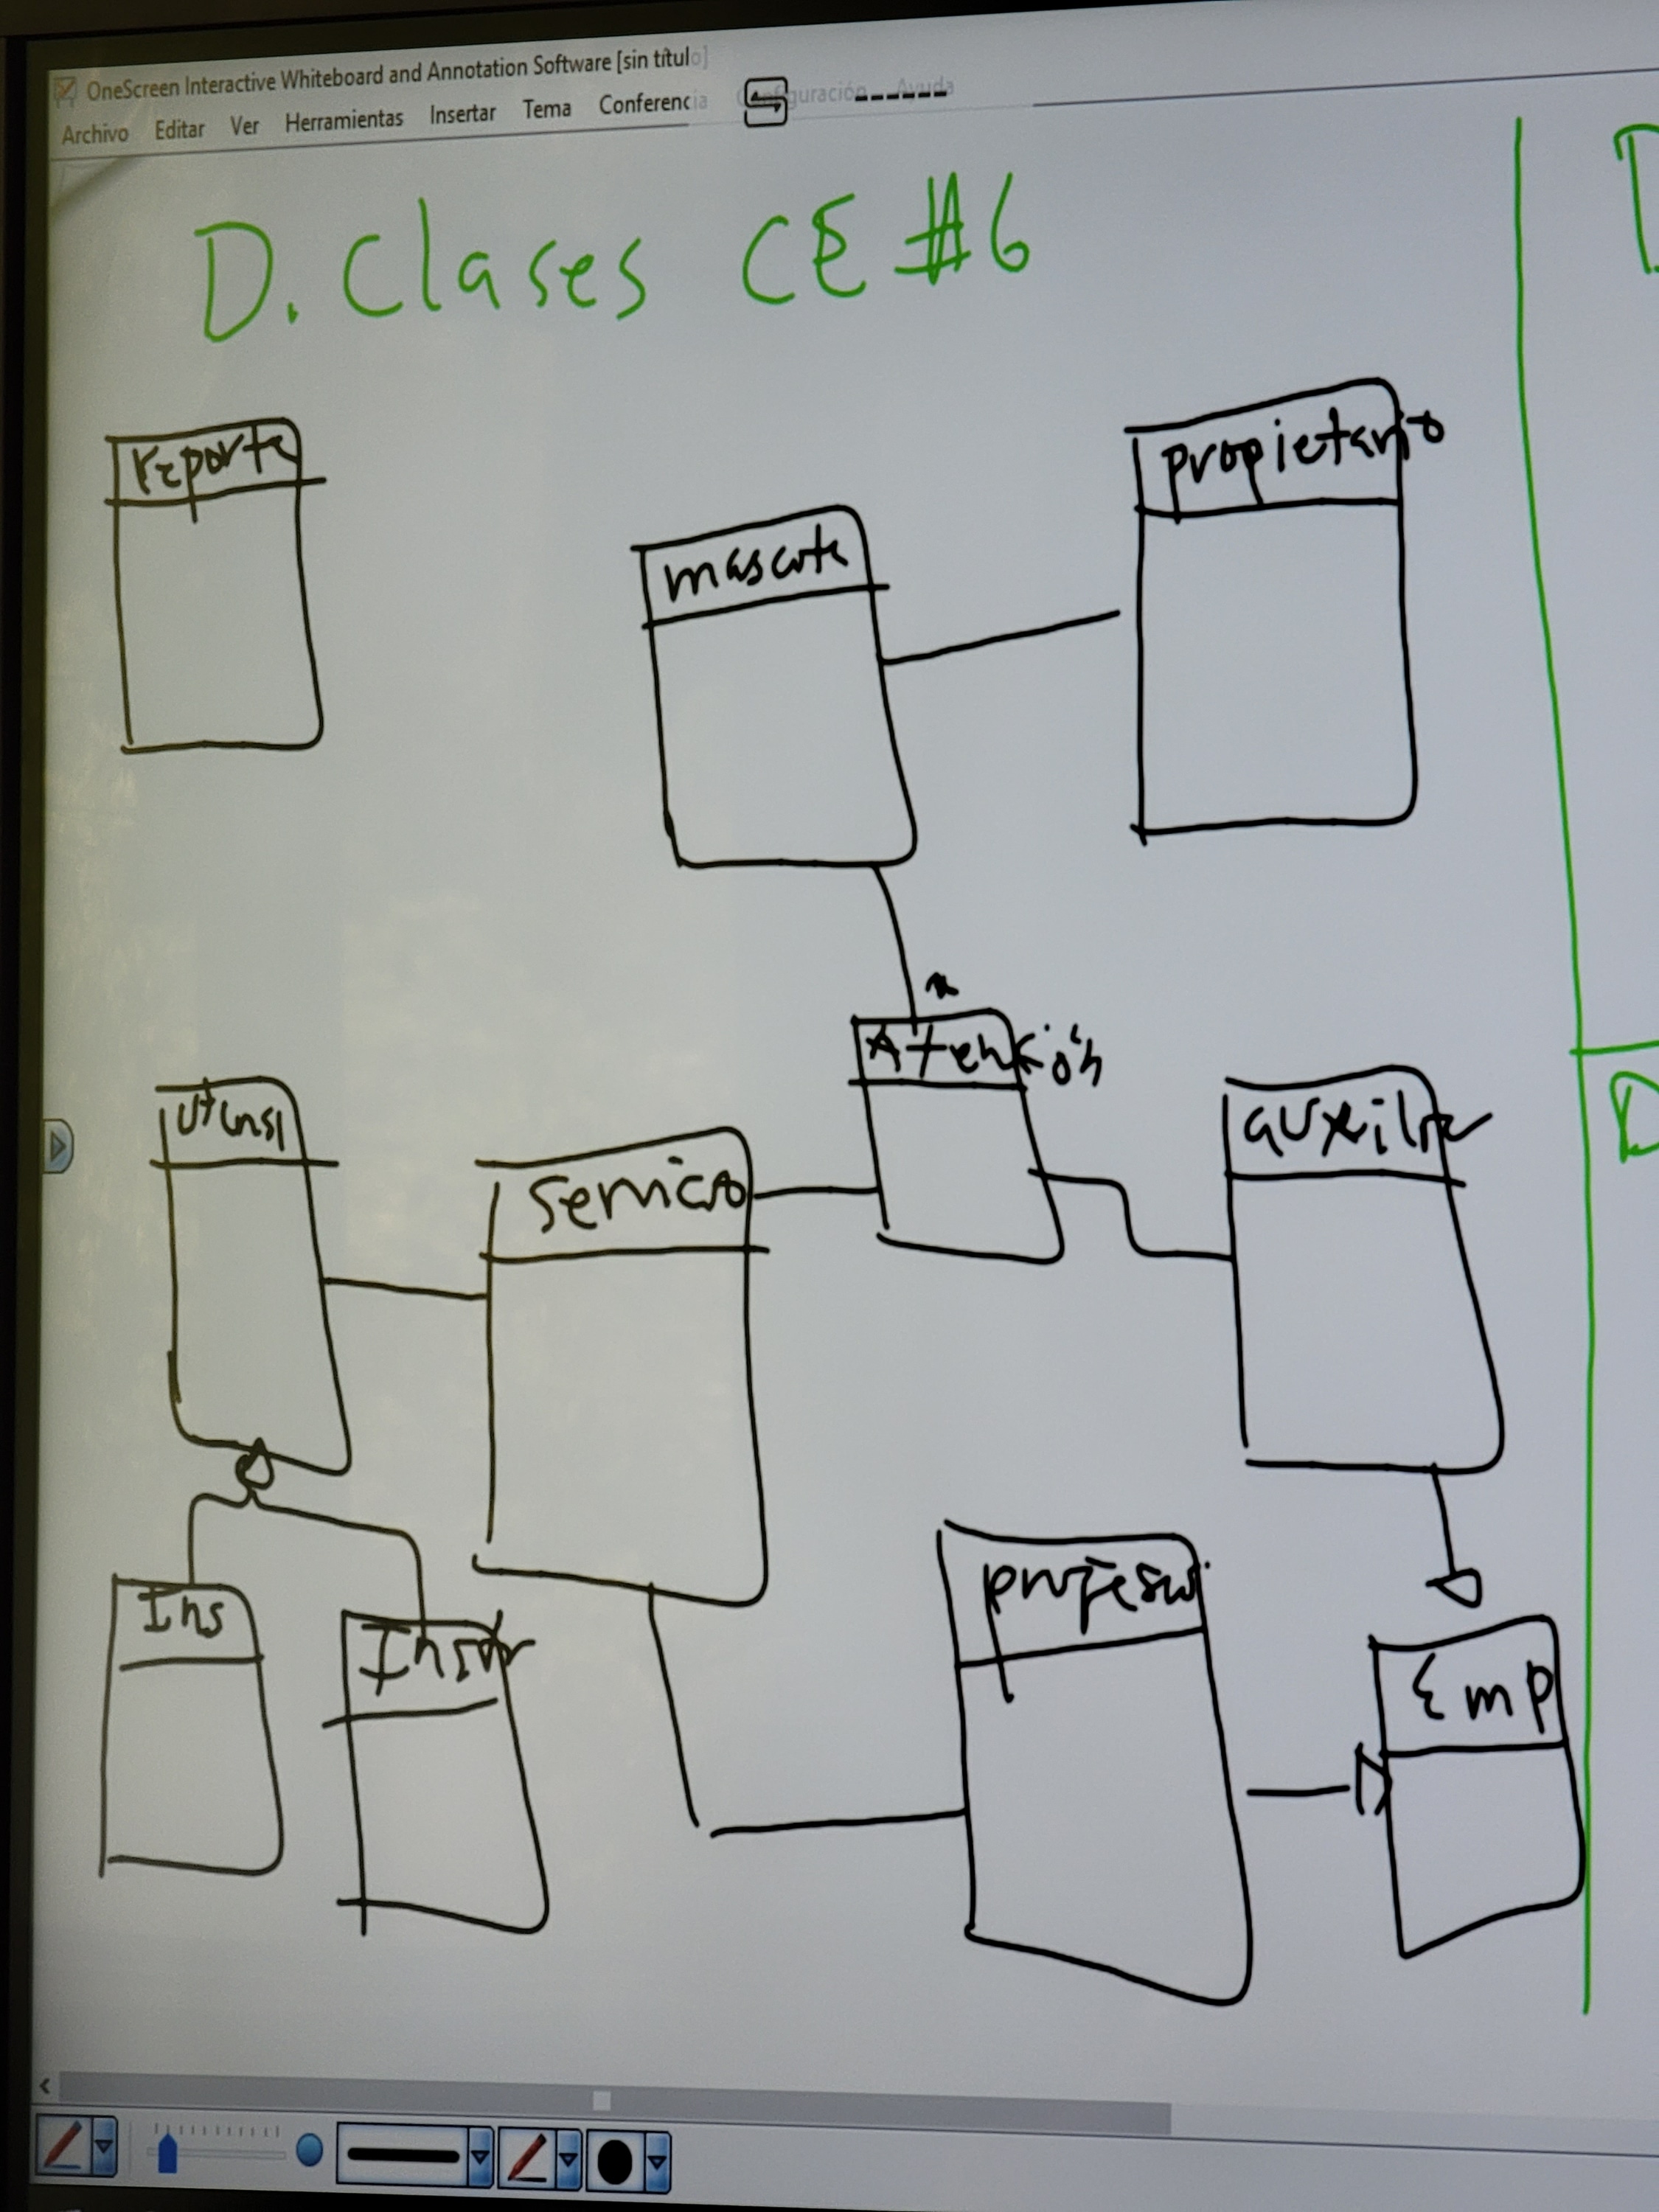 OneScreen Interactive Whiteboard and Annotation Software [sin título]
Archivo Editar Ver Herramientas Insertar Tema Conferencia Configuración Ayuda
D. Clases CE #6
reporte
propietario
mascota
*
Atención
Utensl
servicio
auxiliar
Ins
profesi
Emp
D